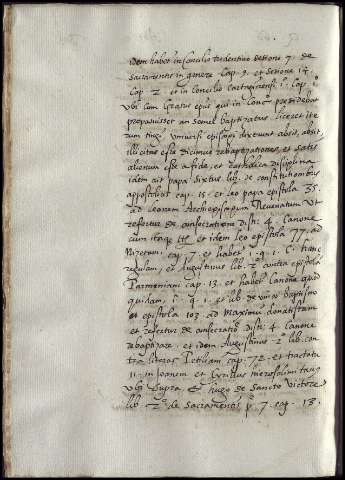 idem habet in Concilio tridentino sessione 7. de
sacramentis in genere Cap. 9. et sessione 14.
Cap. 2. et in Concilio Cartaginensi 1. Cap. 1.
Ubi cum Gratus epus qui in Conc. presidebat
proposuisset an semel baptizatus liceret ite
rum tingi universi episcopi dixerunt absit, absit
illicitas esse dicimus rebaptizationes, et satis
alienum esse a fide, et catholica disciplina
idem ait papa Sixtus lib. de constitutionibus
appostolicis cap. 15. et leo papa epistola 35.
ad leonem Archiepiscopum Ravenatum Ut
refertur de consecratione dist. 4. Canone
cum itaque et idem leo epistola 77. ad
Nizetam, cap. 7. et habet 1. q. 1. C.
regulam, et Augustinus lib. 2. contra epistola
Parmeniani cap. 13. et habet Canone quod
quidam, 1. q. 1. et lib. de unico baptismo
et epistola 203. ad Maximum donatistam
et refertur de consecratio dist. 4. Canone
rebaptizare. et idem Augustinus 2. lib. con
tra literas Petiliani cap. 72. et tractatu
11. in Joanem et Cyrilus
ubi supra et hugo de Sancto Victore
lib. 2. de Sacramentis p. 7. cap. 13.